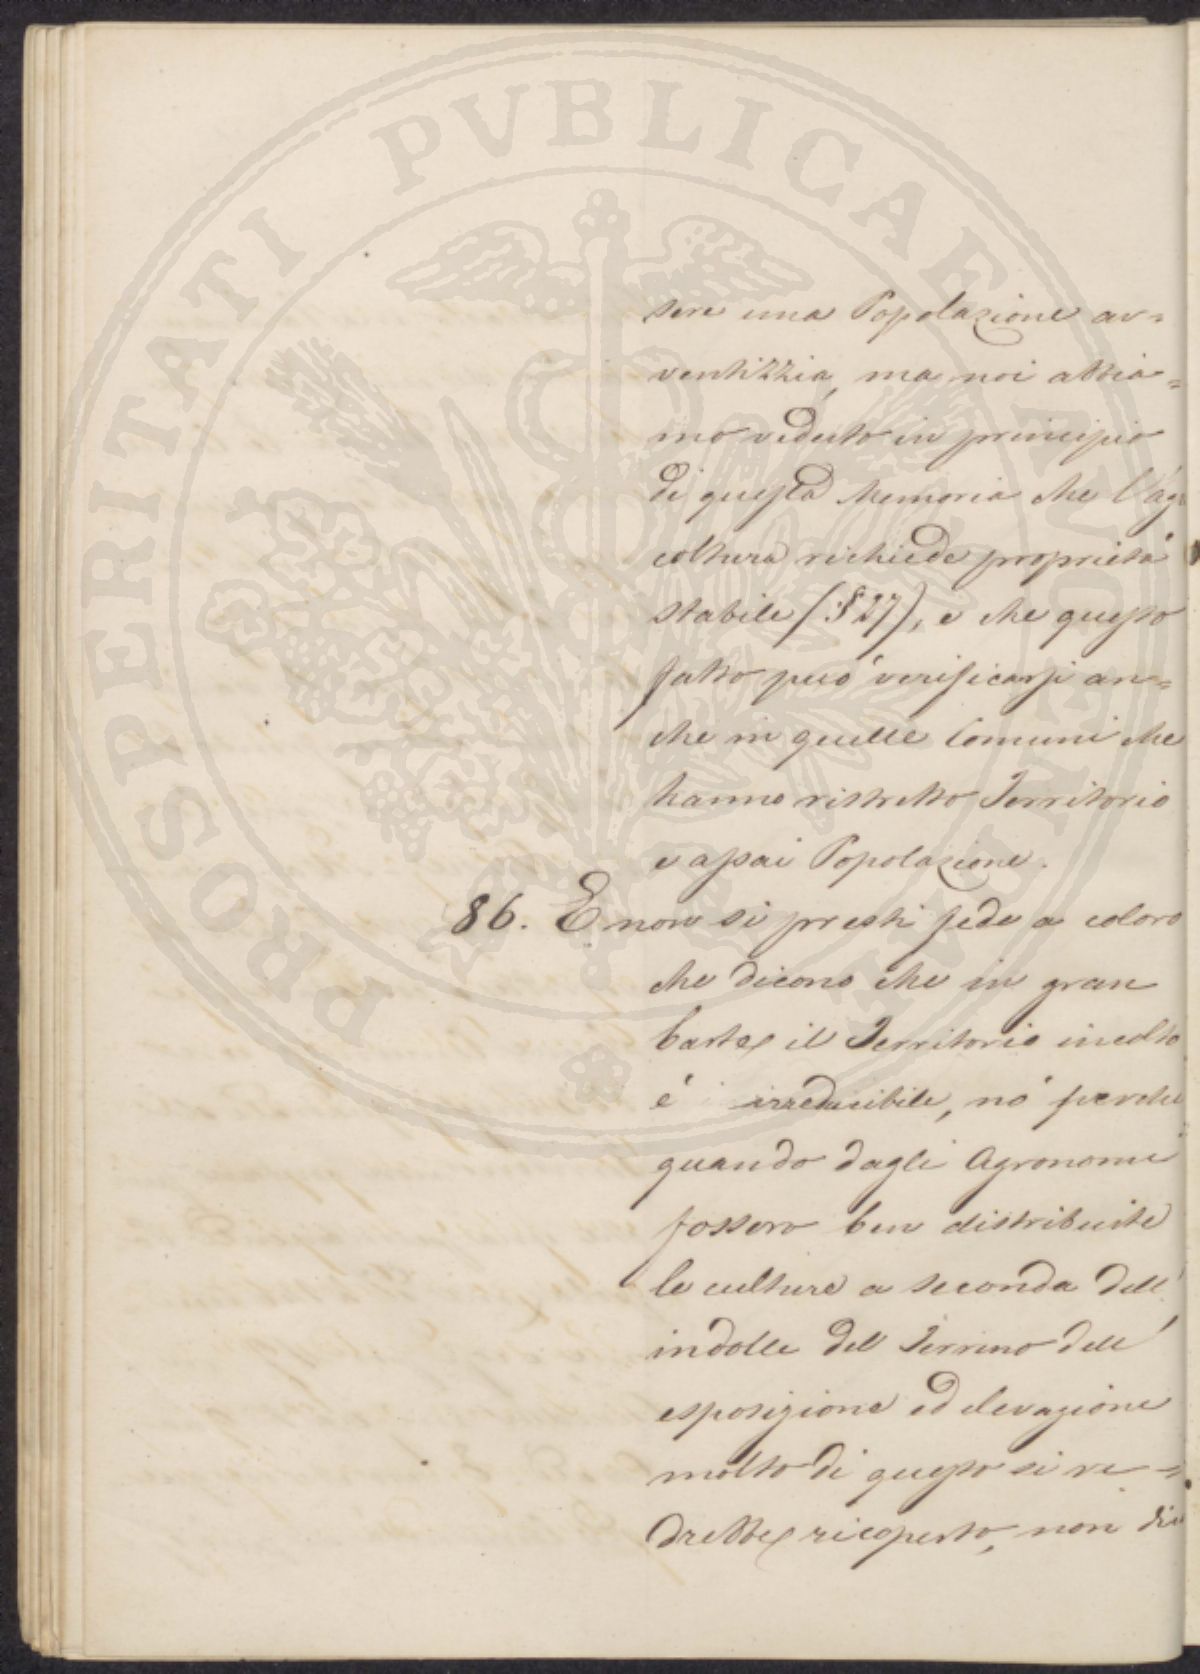 PROSPERITATI PVBLICAE AVGENDAE
sere una Popolazione av=
ventizzia, ma noi abbia=
mo veduto in principio
di questa Memoria che l'agri
coltura richiede proprietà
stabile (§ 27), e che questo
fatto può verificarsi an=
che in quelle Comuni che
hanno ristretto Territorio
e assai Popolazione.
86. E non si presti fede a coloro
che dicono che in gran
parte il Territorio incolto
é irreducibile, nó perche
quando dagli Agronomi
fossero ben distribuite
le culture a seconda dell'
indolle del Terreno dell'
esposizione ed elevazione
molto di questo si ve=
drebbe ricoperto, non